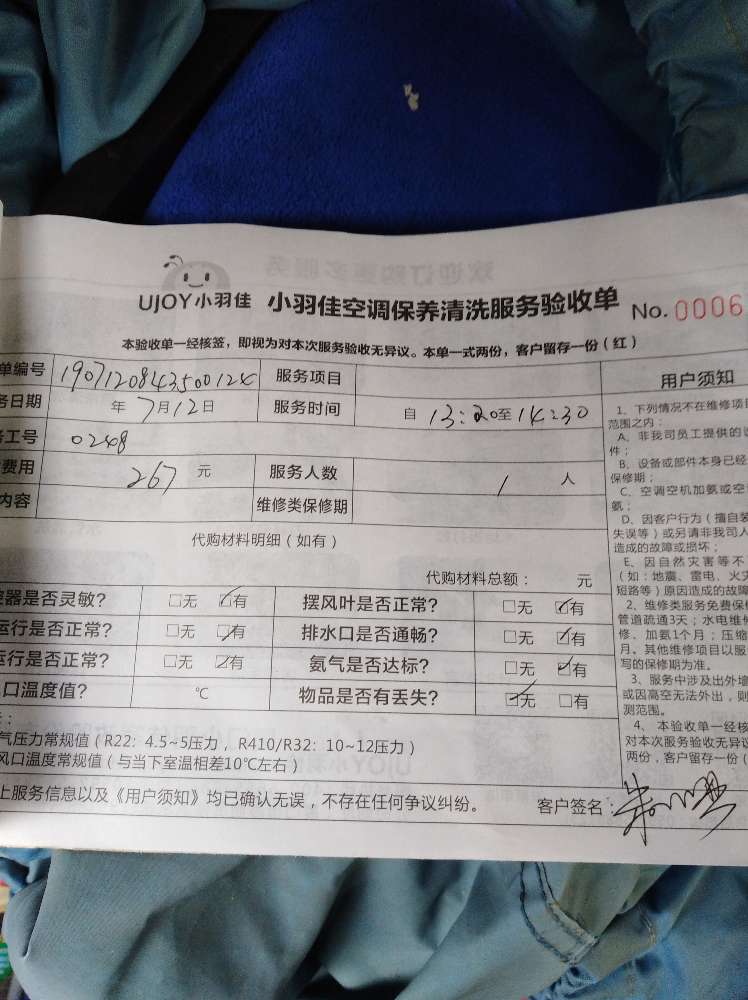 UJOY小羽佳 小羽佳空调保养清洗服务验收单 No.0006
本验收单一经核签，即视为对本次服务验收无异议。本单一式两份，客户留存一份（红）
单编号 190712084350012C 服务项目
务日期 年7月12日 服务时间 自13:20至14:30
工号 0248
费用 267元 服务人数 1人
内容 维修类保修期
代购材料明细（如有）
代购材料总额： 元
器是否灵敏? □无 ☑有 摆风叶是否正常? □无 ☑有
运行是否正常? □无 ☑有 排水口是否通畅? □无 ☑有
运行是否正常? □无 ☑有 氨气是否达标? □无 ☑有
口温度值? ℃ 物品是否有丢失? ☑无 □有
气压力常规值（R22: 4.5~5压力，R410/R32: 10~12压力）
风口温度常规值（与当下室温相差10℃左右）
上服务信息以及《用户须知》均已确认无误，不存在任何争议纠纷。 客户签名：
用户须知
1、下列情况不在维修项目
范围之内：
A、非我司员工提供的
件；
B、设备或部件本身已经
保修期；
C、空调空机加氨或空
氨；
D、因客户行为（擅自装
失误等）或另请非我司人
造成的故障或损坏；
E、因自然灾害等不
（如：地震、雷电、火灾
短路等）原因造成的故障
2、维修类服务免费保
管道疏通3天；水电维
修、加氨1个月；压缩
月。其他维修项目以服
写的保修期为准。
3、服务中涉及出外墙
或因高空无法外出，则
测范围。
4、本验收单一经核
对本次服务验收无异议
两份，客户留存一份（